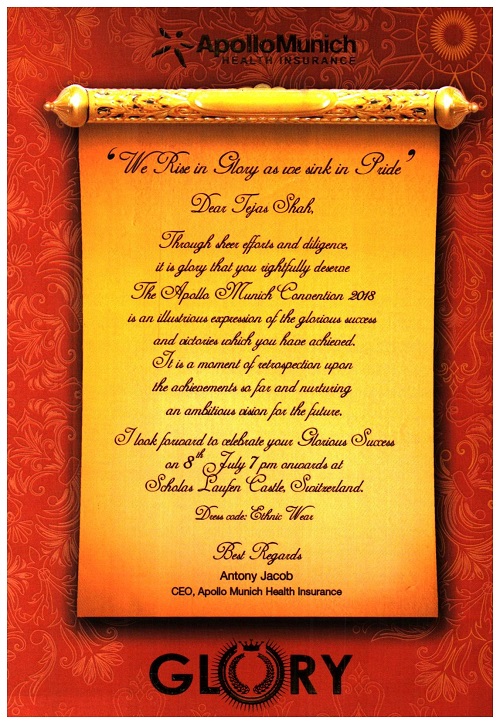 ApolloMunich
HEALTH INSURANCE
‘We Rise in Glory as we sink in Pride’
Dear Tejas Shah,
Through sheer efforts and diligence,
it is glory that you rightfully deserve
The Apollo Munich Convention 2018
is an illustrious expression of the glorious success
and victories which you have achieved.
It is a moment of retrospection upon
the achievements so far and nurturing
an ambitious vision for the future.
I look forward to celebrate your Glorious Success
on 8th July 7 pm onwards at
Scholas Laufen Castle, Switzerland.
Dress code: Ethnic Wear
Best Regards
Antony Jacob
CEO, Apollo Munich Health Insurance
GLORY